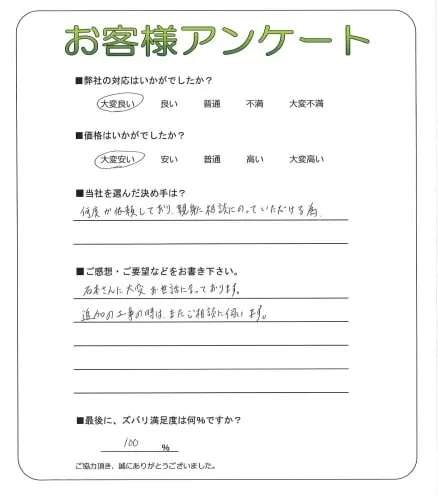 お客様アンケート
■弊社の対応はいかがでしたか？
大変良い 良い 普通 不満 大変不満
■価格はいかがでしたか？
大変安い 安い 普通 高い 大変高い
■当社を選んだ決め手は？
何度か依頼しており、親身に相談にのっていただける為
■ご感想・ご要望などをお書き下さい。
さんに大変お世話になっております。
追加の工事の時は、またご相談に伺います。
■最後に、ズバリ満足度は何％ですか？
100 ％
ご協力頂き、誠にありがとうございました。